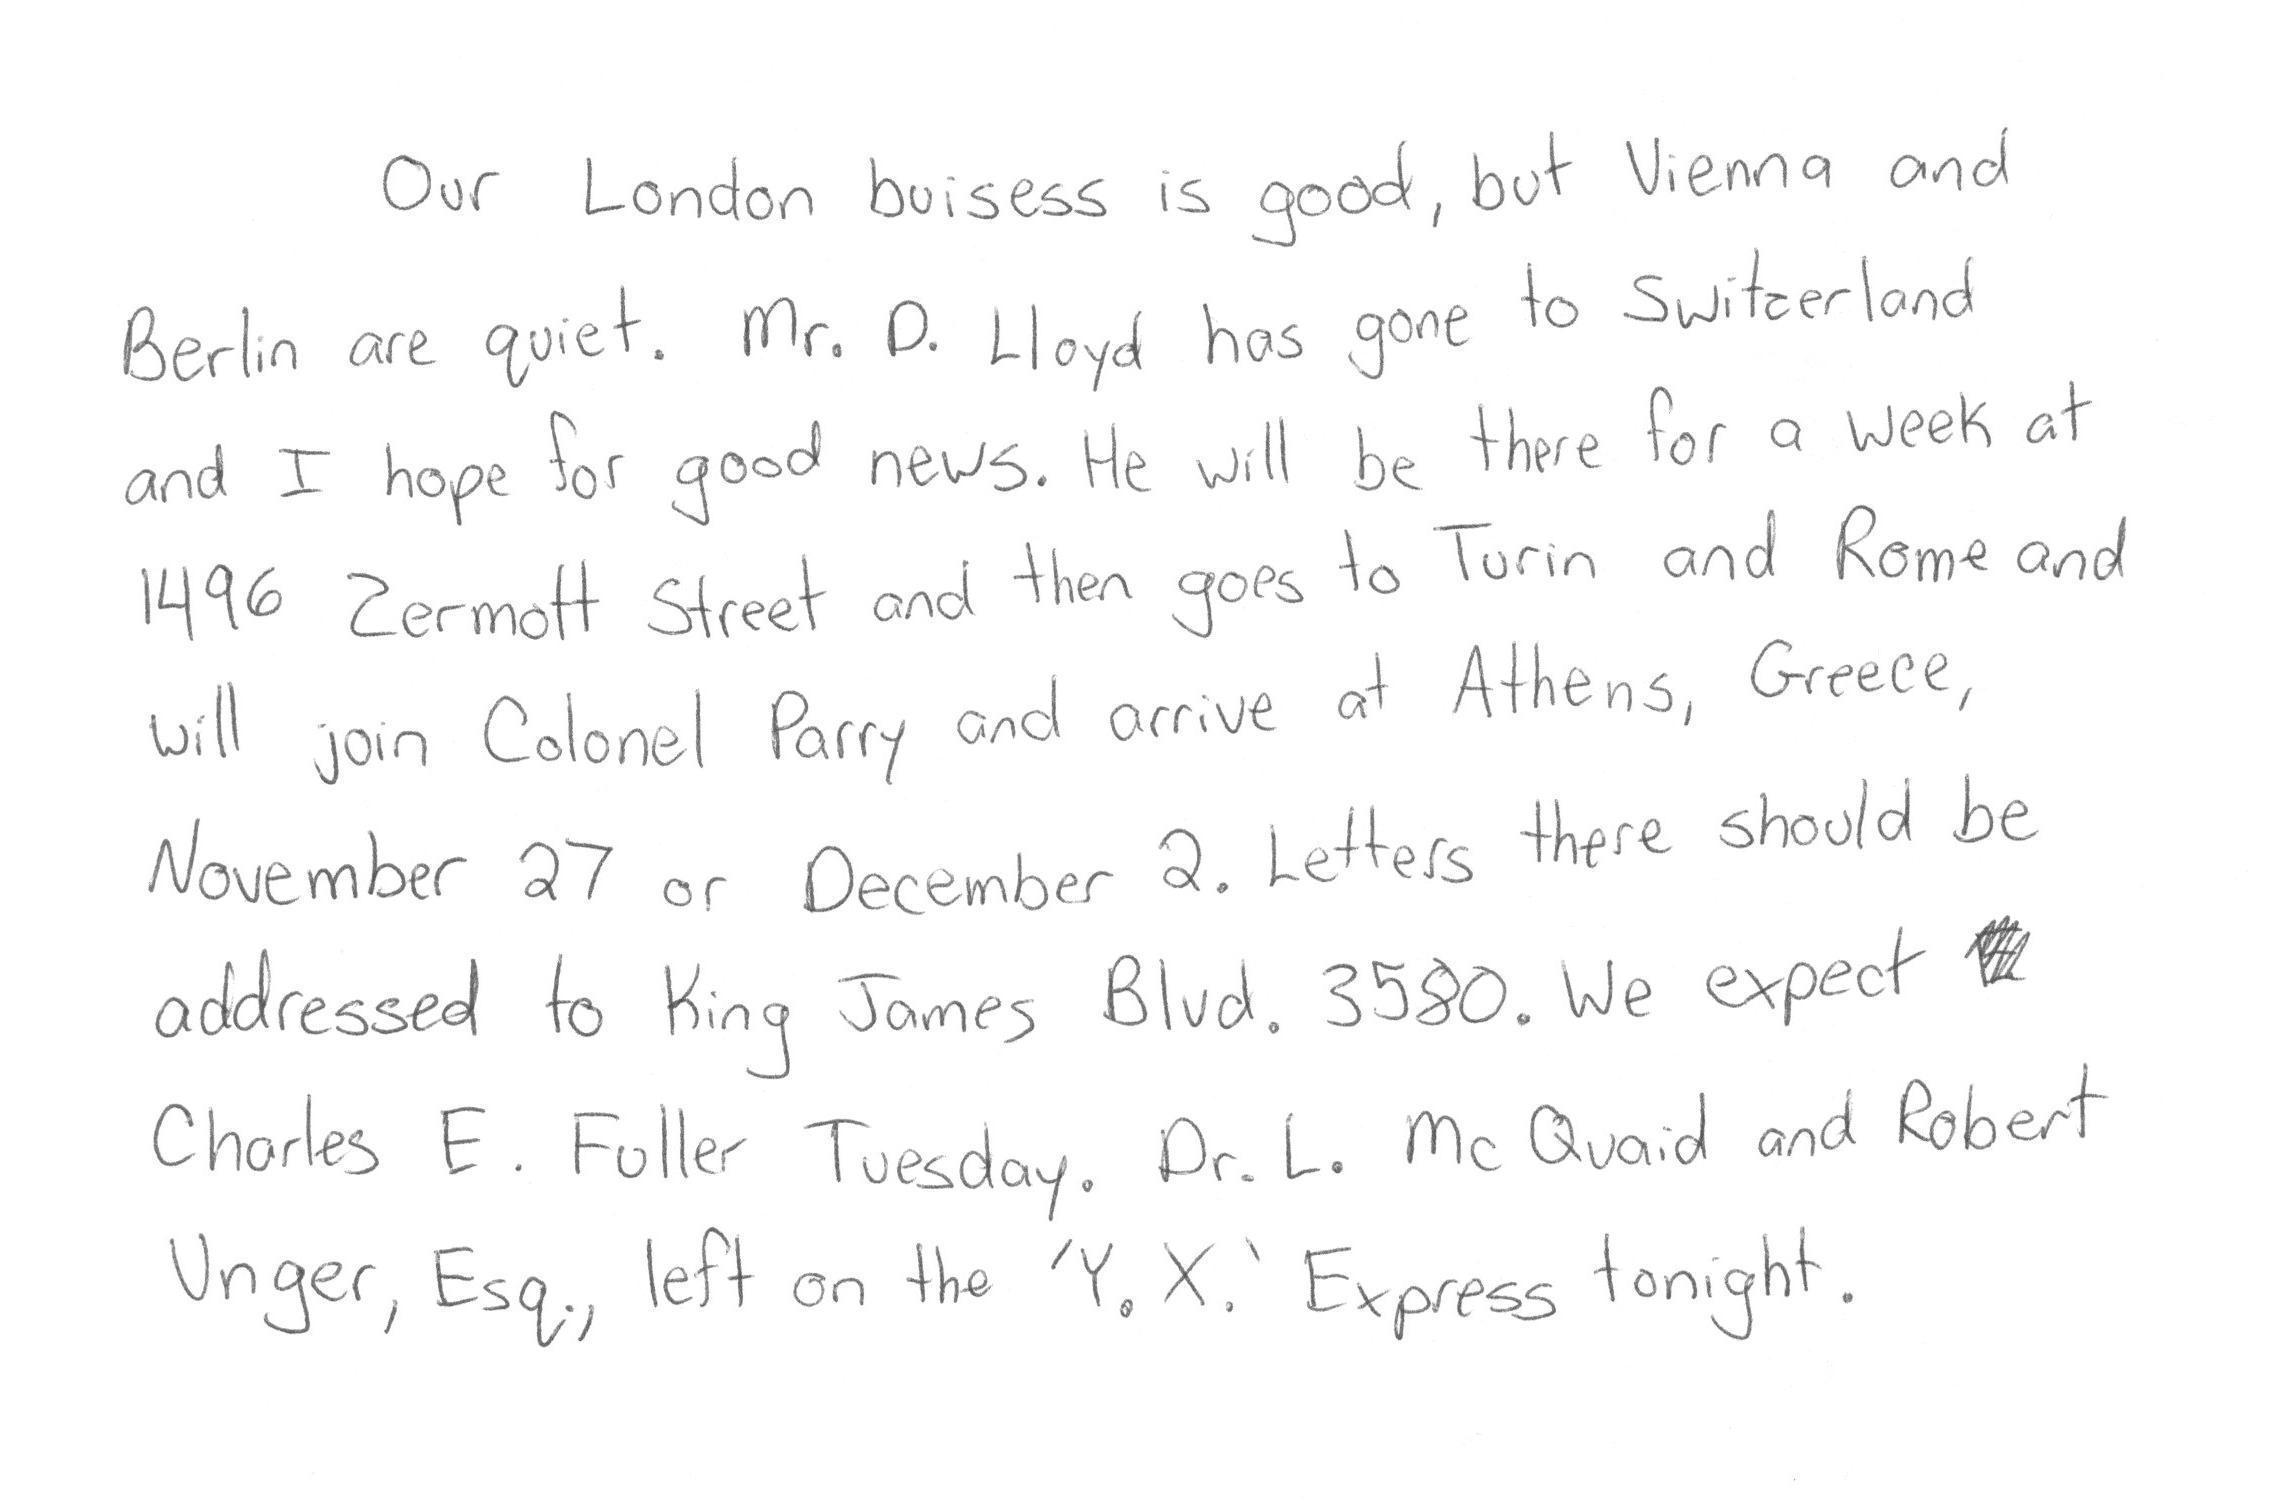 Our London buisess is good, but Vienna and
Berlin are quiet. Mr. D. Lloyd has gone to Switzerland
and I hope for good news. He will be there for a week at
1496 Zermott Street and then goes to Turin and Rome and
will join Colonel Parry and arrive at Athens, Greece,
November 27 or December 2. Letters there should be
addressed to King James Blvd. 3580. We expect
Charles E. Fuller Tuesday. Dr. L. Mc Quaid and Robert
Unger, Esq., left on the 'Y. X.' Express tonight.